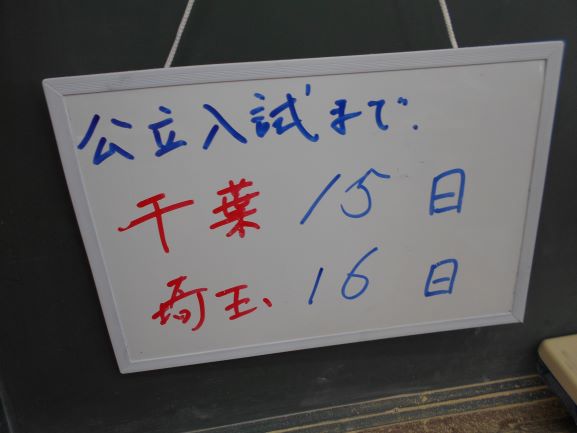 公立入試まで.
千葉 15日
埼玉 16日